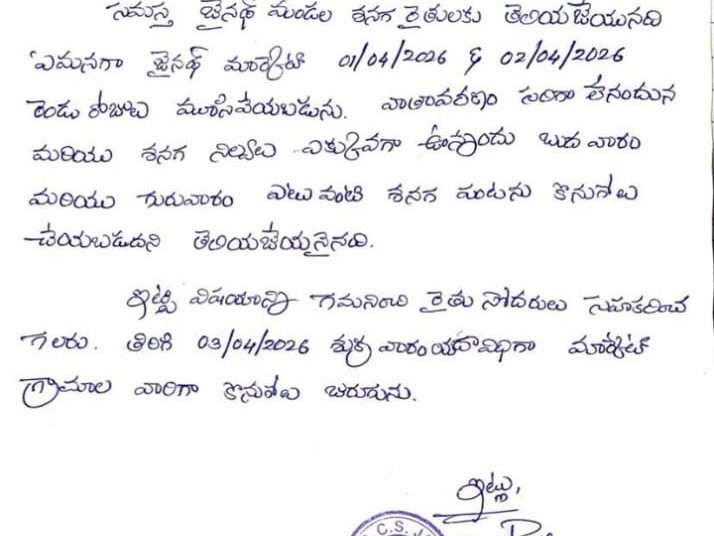 సమస్త జైనథ్ మండల శనగ రైతులకు తెలియజేయునది
ఏమనగా జైనథ్ మార్కెట్ 01/04/2026 & 02/04/2026
రెండు రోజులు మూసివేయబడును. వాతావరణం సరిగా లేనందున
మరియు శనగ నిల్వలు ఎక్కువగా ఉన్నందు బుదవారం
మరియు గురువారం ఎటువంటి శనగ పంటను కొనుగోలు
చేయబడదని తెలియజేయనైనది.
ఇట్టి విషయాన్ని గమనించి రైతు సోదరులు సహకరించ
గలరు. తిరిగి 03/04/2026 శుక్రవారం యదావిధిగా మార్కెట్
గ్రామాల వారిగా కొనుగోలు జరుగును.
ఇట్లు,
C.S.